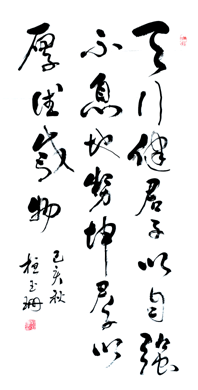 天行健君子以自强
不息地势坤君子以
厚德载物
己亥秋
桂玉珊